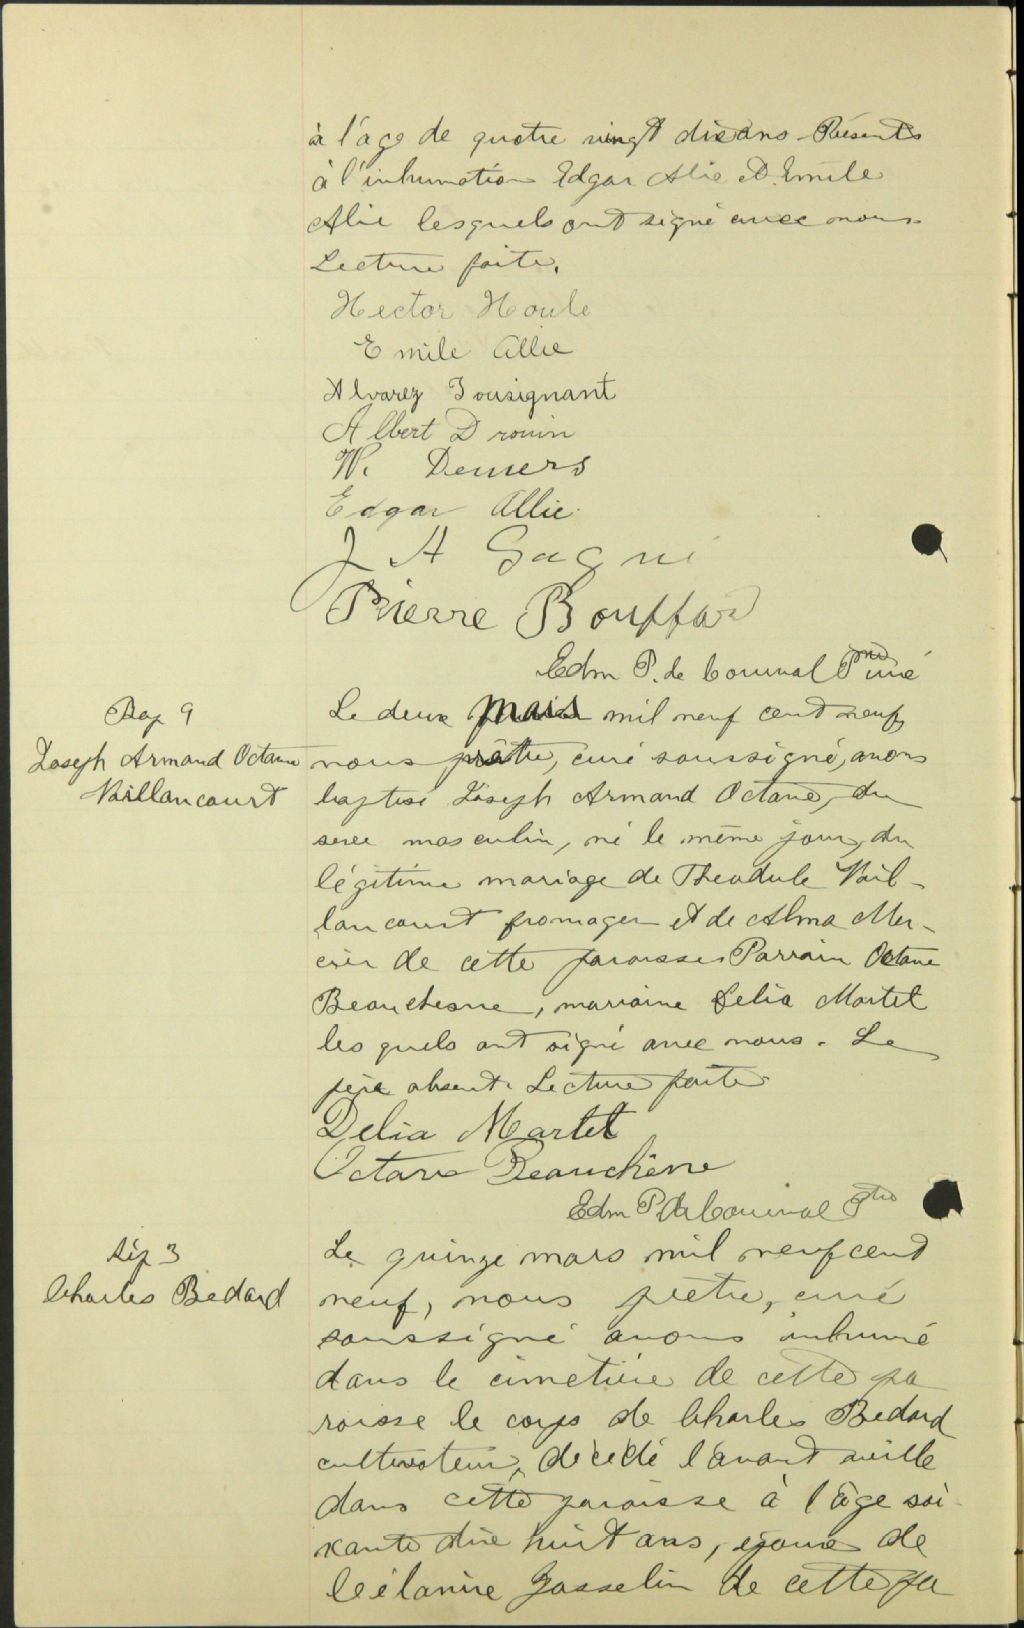 à l'age de quatre vingt dix ans. Présents
à l'inhumation Edgar Alie et Emile
Alie lesquels ont signé avec nous
Lecture faite.
Hector Houle
Emile Allie
Alvarez Tousignant
Albert Drouin
W. Demers
Edgar Allie
J A Gagné
Pierre Bouffard
Edm P. de Courval Ptre curé
Bap 9
Joseph Armand Octave
Vaillancourt
Le deux mars mil neuf cent neuf,
nous prêtre, curé soussigné, avons
baptisé Joseph Armand Octave, du
sexe masculin, né le même jour, du
légitime mariage de Theodule Vail-
lancourt fromager et de Alma Mer-
cier de cette paroisse. Parrain Octave
Beauchesne, marraine Delia Martel
lesquels ont signé avec nous. Le
père absent. Lecture faite
Delia Martel
Octave Beauchêne
Edm P. de Courval Ptre
Sép 3
Charles Bedard
Le quinze mars mil neuf cent
neuf, nous prêtre, curé
soussigné avons inhumé
dans le cimetière de cette pa
roisse le corps de Charles Bedard
cultivateur, décédé l'avant veille
dans cette paroisse à l'âge soi-
xante dix huit ans, époux de
Célanire Gosselin de cette pa